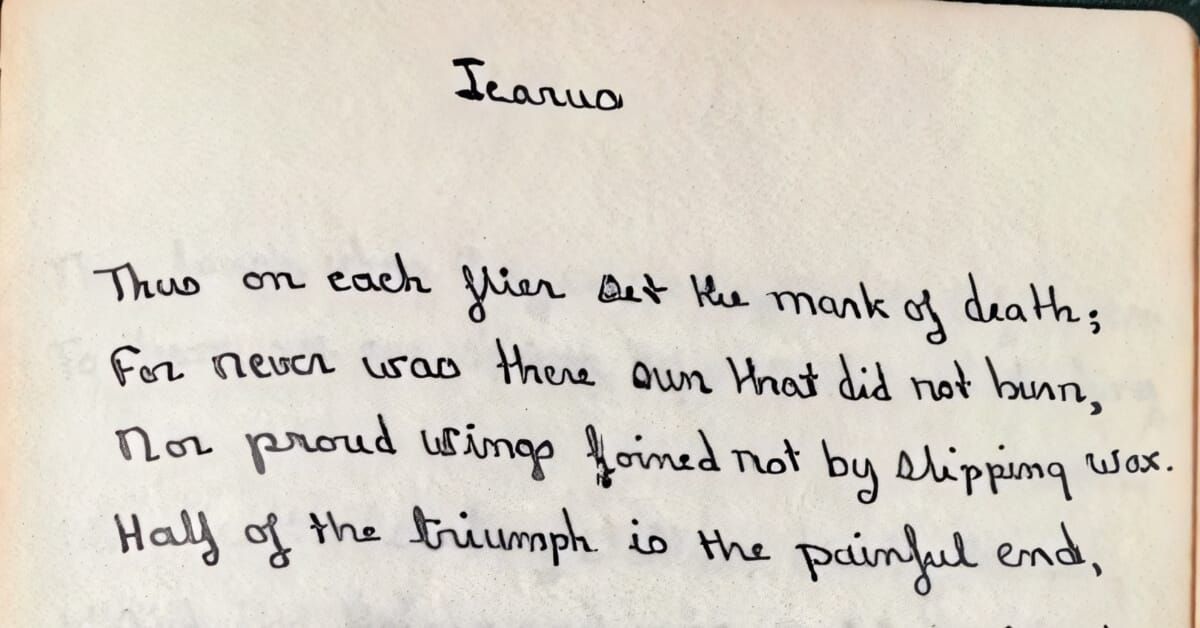 Icarus
Thus on each flier set the mark of death;
For never was there sun that did not burn,
Nor proud wings joined not by slipping wax.
Half of the triumph is the painful end,